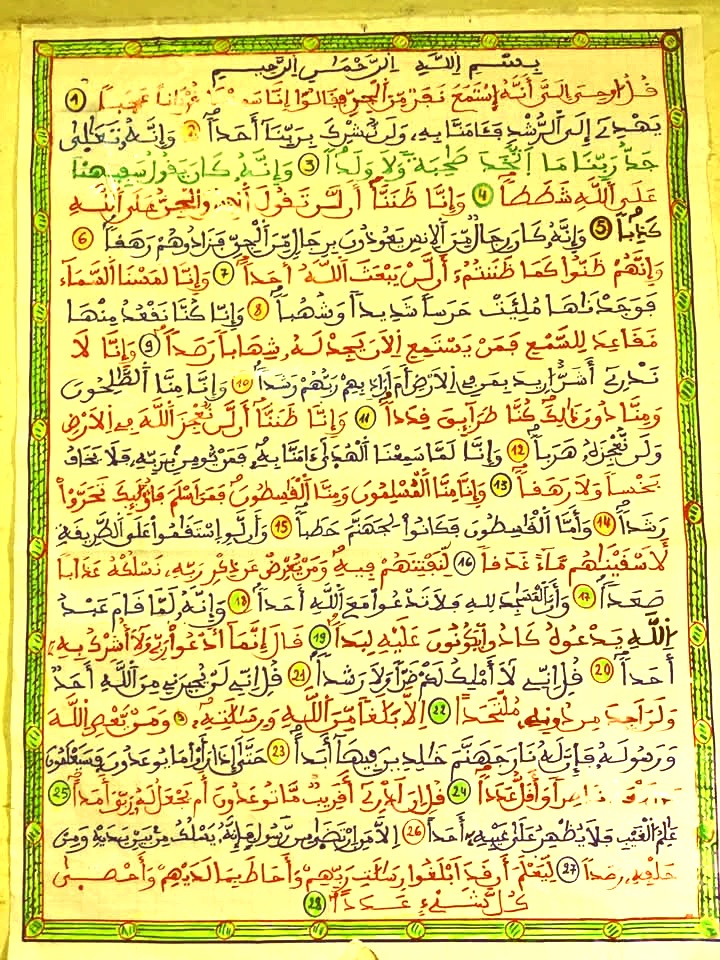 بسم الله الرحمن الرحيم
قل اوحي الي انه إستمع نفر من الجن فقالوا إنا سمعنا قرءانا عجبا 1
يهدي إلى الرشد فئامنا به، ولن نشرك بربنا أحدا 2 وإنه تعالى
جد ربنا ما اتخذ صحبة ولا ولدا 3 وإنه كان يقول سفيهنا
على الله شططا 4 وإنا ظننا أن لن تقول الانس والجن على الله
كذبا 5 وإنه كان رجال من الانس يعوذون برجال من الجن فزادوهم رهقا 6
وإنهم ظنوا كما ظننتم أن لن يبعث الله احدا 7 وإنا لمسنا السماء
فوجدناها ملئت حرسا شديدا وشهبا 8 وإنا كنا نقعد منها
مقاعد للسمع فمن يستمع الان يجد له شهابا رصدا 9 وإنا لا
ندري أشر اريد بمن في الارض أم اراد بهم ربهم رشدا 10 وإنا منا الصلحون
ومنا دون ذلك كنا طرايق قددا 11 وإنا ظننا أن لن نعجز الله في الارض
ولن نعجزه هربا 12 وإنا لما سمعنا الهدى ءامنا به فمن يومن بربه فلا يخاف
بخسا ولا رهقا 13 وإنا منا المسلمون ومنا القسطون فمن اسلم فاولئك تحروا
رشدا 14 وأما القسطون فكانوا لجهنم حطبا 15 وأن لو إستقموا على الطريقة
لأسقينهم ماء غدقا 16 لنفتنهم فيه ومن يعرض عن ذكر ربه نسلكه عذابا
صعدا 17 وأن المسجد لله فلا تدعوا مع الله أحدا 18 وإنه لما قام عبد
الله يدعوه كادوا يكونون عليه لبدا 19 قال إنما أدعوا ربي ولا أشرك به
أحدا 20 قل اني لا أملك لكم ضرا ولا رشدا 21 قل اني لن يجيرني من الله أحد
ولن اجد من دونه ملتحدا 22 إلا بلغا من الله ورسلته ومن يعص الله
ورسوله فإن له نار جهنم خلدين فيها أبدا 23 حتى إذا رأوا ما يوعدون فسيعلمون
ناصرا وأقل عددا 24 قل ان ادري أقريب ما توعدون أم يجعل له ربي أمدا 25
علم الغيب فلا يظهر على غيبه أحدا 26 إلا من ارتضى من رسول فإنه يسلك من بين يديه ومن
خلفه رصدا 27 ليعلم أن قد ابلغوا رسلت ربهم وأحاط بما لديهم وأحصى
كل شيء عددا 28